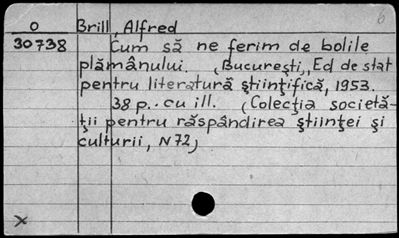 6
O Brill, Alfred
30738 Cum să ne ferim de bolile
plămânului. (Bucureşti), Ed de stat
pentru literatură ştiinţifică, 1953.
38 p.. cu ill. (Colecţia societă-
ţii pentru răspândirea ştiinţei şi
culturii, N 72)
X